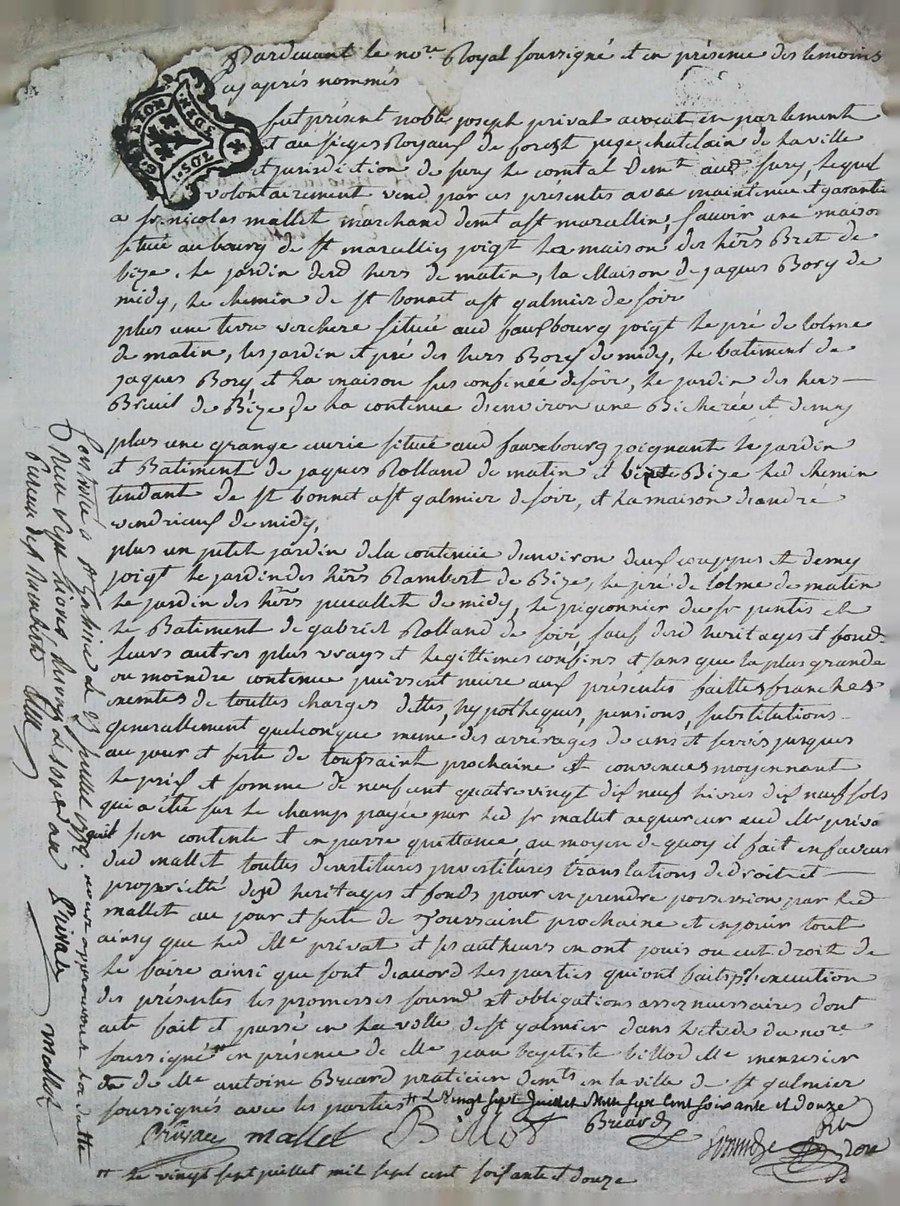 Pardevant le no.re Royal soussigné et en présence des temoins
cy aprés nommés
fut présent noble joseph privat avocat en parlement
et au siéges Royaux de forest juge chatelain de la ville
et jurisdiction de sury le comtal dem.t aud sury, lequel
volontairement vend par ces présentes avec maintenue et garantie
a sr. nicolas mallet marchand dem.t a st marcellin, sauoir une maison
située au bourg de st marcellin joig.t la maison des hers Bret de
bize, le jardin desd hers de matin, la maison de jaques Bory de
midy, le chemin de st bonnet a st galmier de soir
plus une terre verchere située aud fauxbourg joig.t le pré de lolme
de matin, les jardin et pré des hers Bory de midy, le batiment de
jaques Bory et la maison sus confinée de soir, le jardin des hers
Breuil de Bize de la contenue denviron une Bicherée et demy
plus une grange ecurie située aud fauxbourg joignant le jardin
et Batiment de jaques Rolland de matin et Bize led chemin
tendant de st bonnet a st galmier de soir, et la maison dandre
vendrieux de midy,
plus un petit jardin de la contenüe denviron deux couppes et demy
joig.t le jardin des hers Rambert de Bize, le pré de lolme de matin
le jardin des hers de midy, le pigeonnier du sr et
le Batiment de gabriel Rolland de soir sauf desd heritages et fonds
leurs autres plus vrays et legittimes confins et sans que la plus grande
ou moindre contenue puissent nuire aux présentes faittes franches
exemtes de touttes charges dettes, hypotheques, pensions, substitutions
generallement quelconque meme des arrérages de cens et servis jusques
au jour et feste de toussaint prochaine et convenues moyennant
le prix et somme de neuf cent quatre vingt dix neuf livres dix neuf sols
qui a été sur le champ payée par led sr mallet acquereur aud Me privat
quil sen contente et en passe quittance, au moyen de quoy il fait en faveur
dud mallet touttes devestitures investitures translations de droit et
propriétté desd heritages et fonds pour en prendre possession par led
mallet au jour et feste de Toussaint prochaine et en jouir tout
ainsy que led Me privat et ses autheurs en ont jouis ou eut droit de
le faire ainsi que sont daccord les parties qui ont faits p.r execution
des présentes les promesses soumo et obligations a ces necessaires dont
acte fait et passé en la ville de st galmier dans letude du no.re
soussigné en présence de Me jean baptiste billod Me menuisier
de Me antoine Breard praticien dem.ts en la ville de st galmier
soussignés avec les parties le vingt sept juillet mille sept cent soixante et douze
Privat mallet Billod Breard
le vingt sept juillet mil sept cent soixante et douze
Controllé a St Galmier le 27 juillet 1772. nous approuvons
Recu sept livres
Privat mallet
GN. DE LYON
1.S.6D.